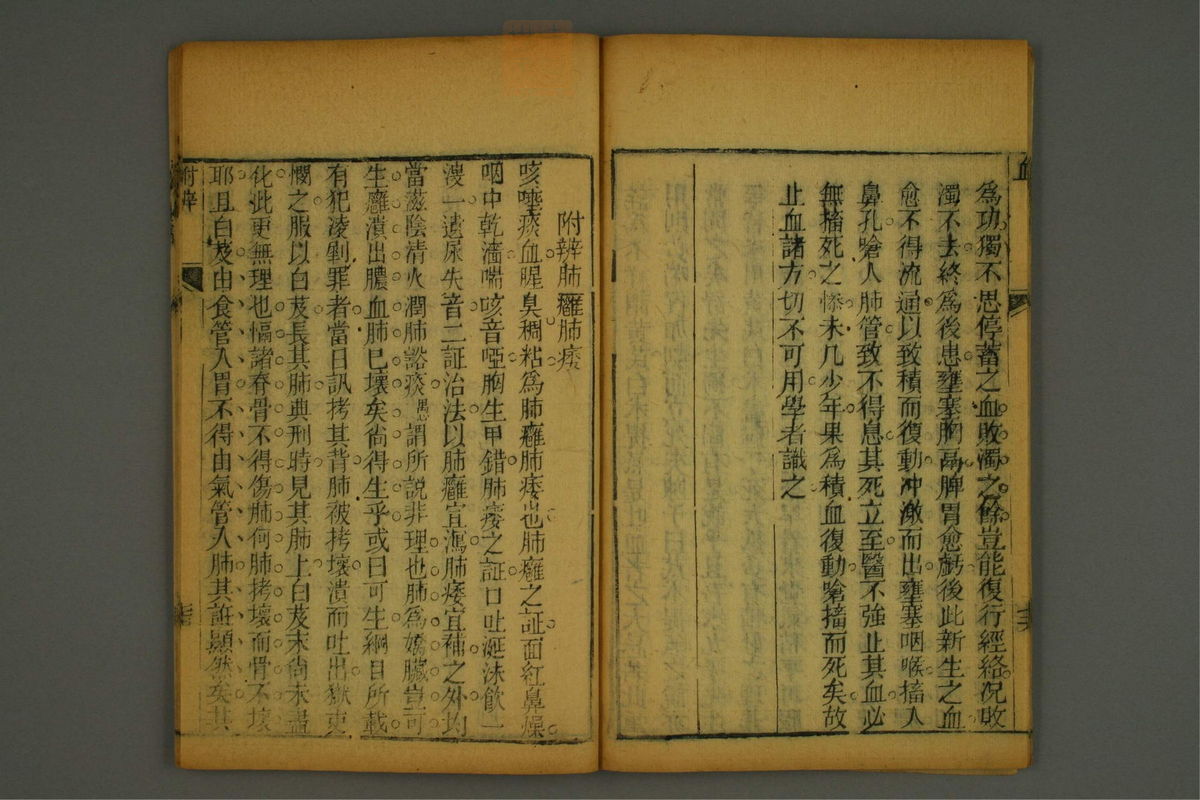 血
為功獨不思停蓄之血敗濁之餘豈能復行經絡况敗
濁不去終為後患壅塞胸膈脾胃愈虧後此新生之血
愈不得流通以致積而復動冲激而出壅塞咽喉搐入
鼻孔嗆入肺管致不得息其死立至醫不強止其血必
無搐死之慘未几少年果為積血復動嗆搐而死矣故
止血諸方切不可用學者識之
附辨肺癰肺痿
咳唾痰血腥臭稠粘為肺癰肺痿也肺癰之証面紅鼻燥
咽中乾濇喘咳音啞胸生甲錯肺痿之証口吐涎沫飲一
溲一遺尿失音二証治法以肺癰宜瀉肺痿宜補之外均
當滋陰清火潤肺豁痰愚謂所説非理也肺為嬌臟豈可
生癰潰出膿血肺巳壞矣尚得生乎或曰可生綱目所載
有犯凌剝罪者當日訊拷其背肺被拷壞潰而吐出獄吏
憫之服以白芨長其肺典刑時見其肺上白芨末尚未盡
化此更無理也愊諸脊骨不得傷肺何肺拷壞而骨不壞
耶且白芨由食管入胃不得由氣管入肺其誑顯然矣其
附辨